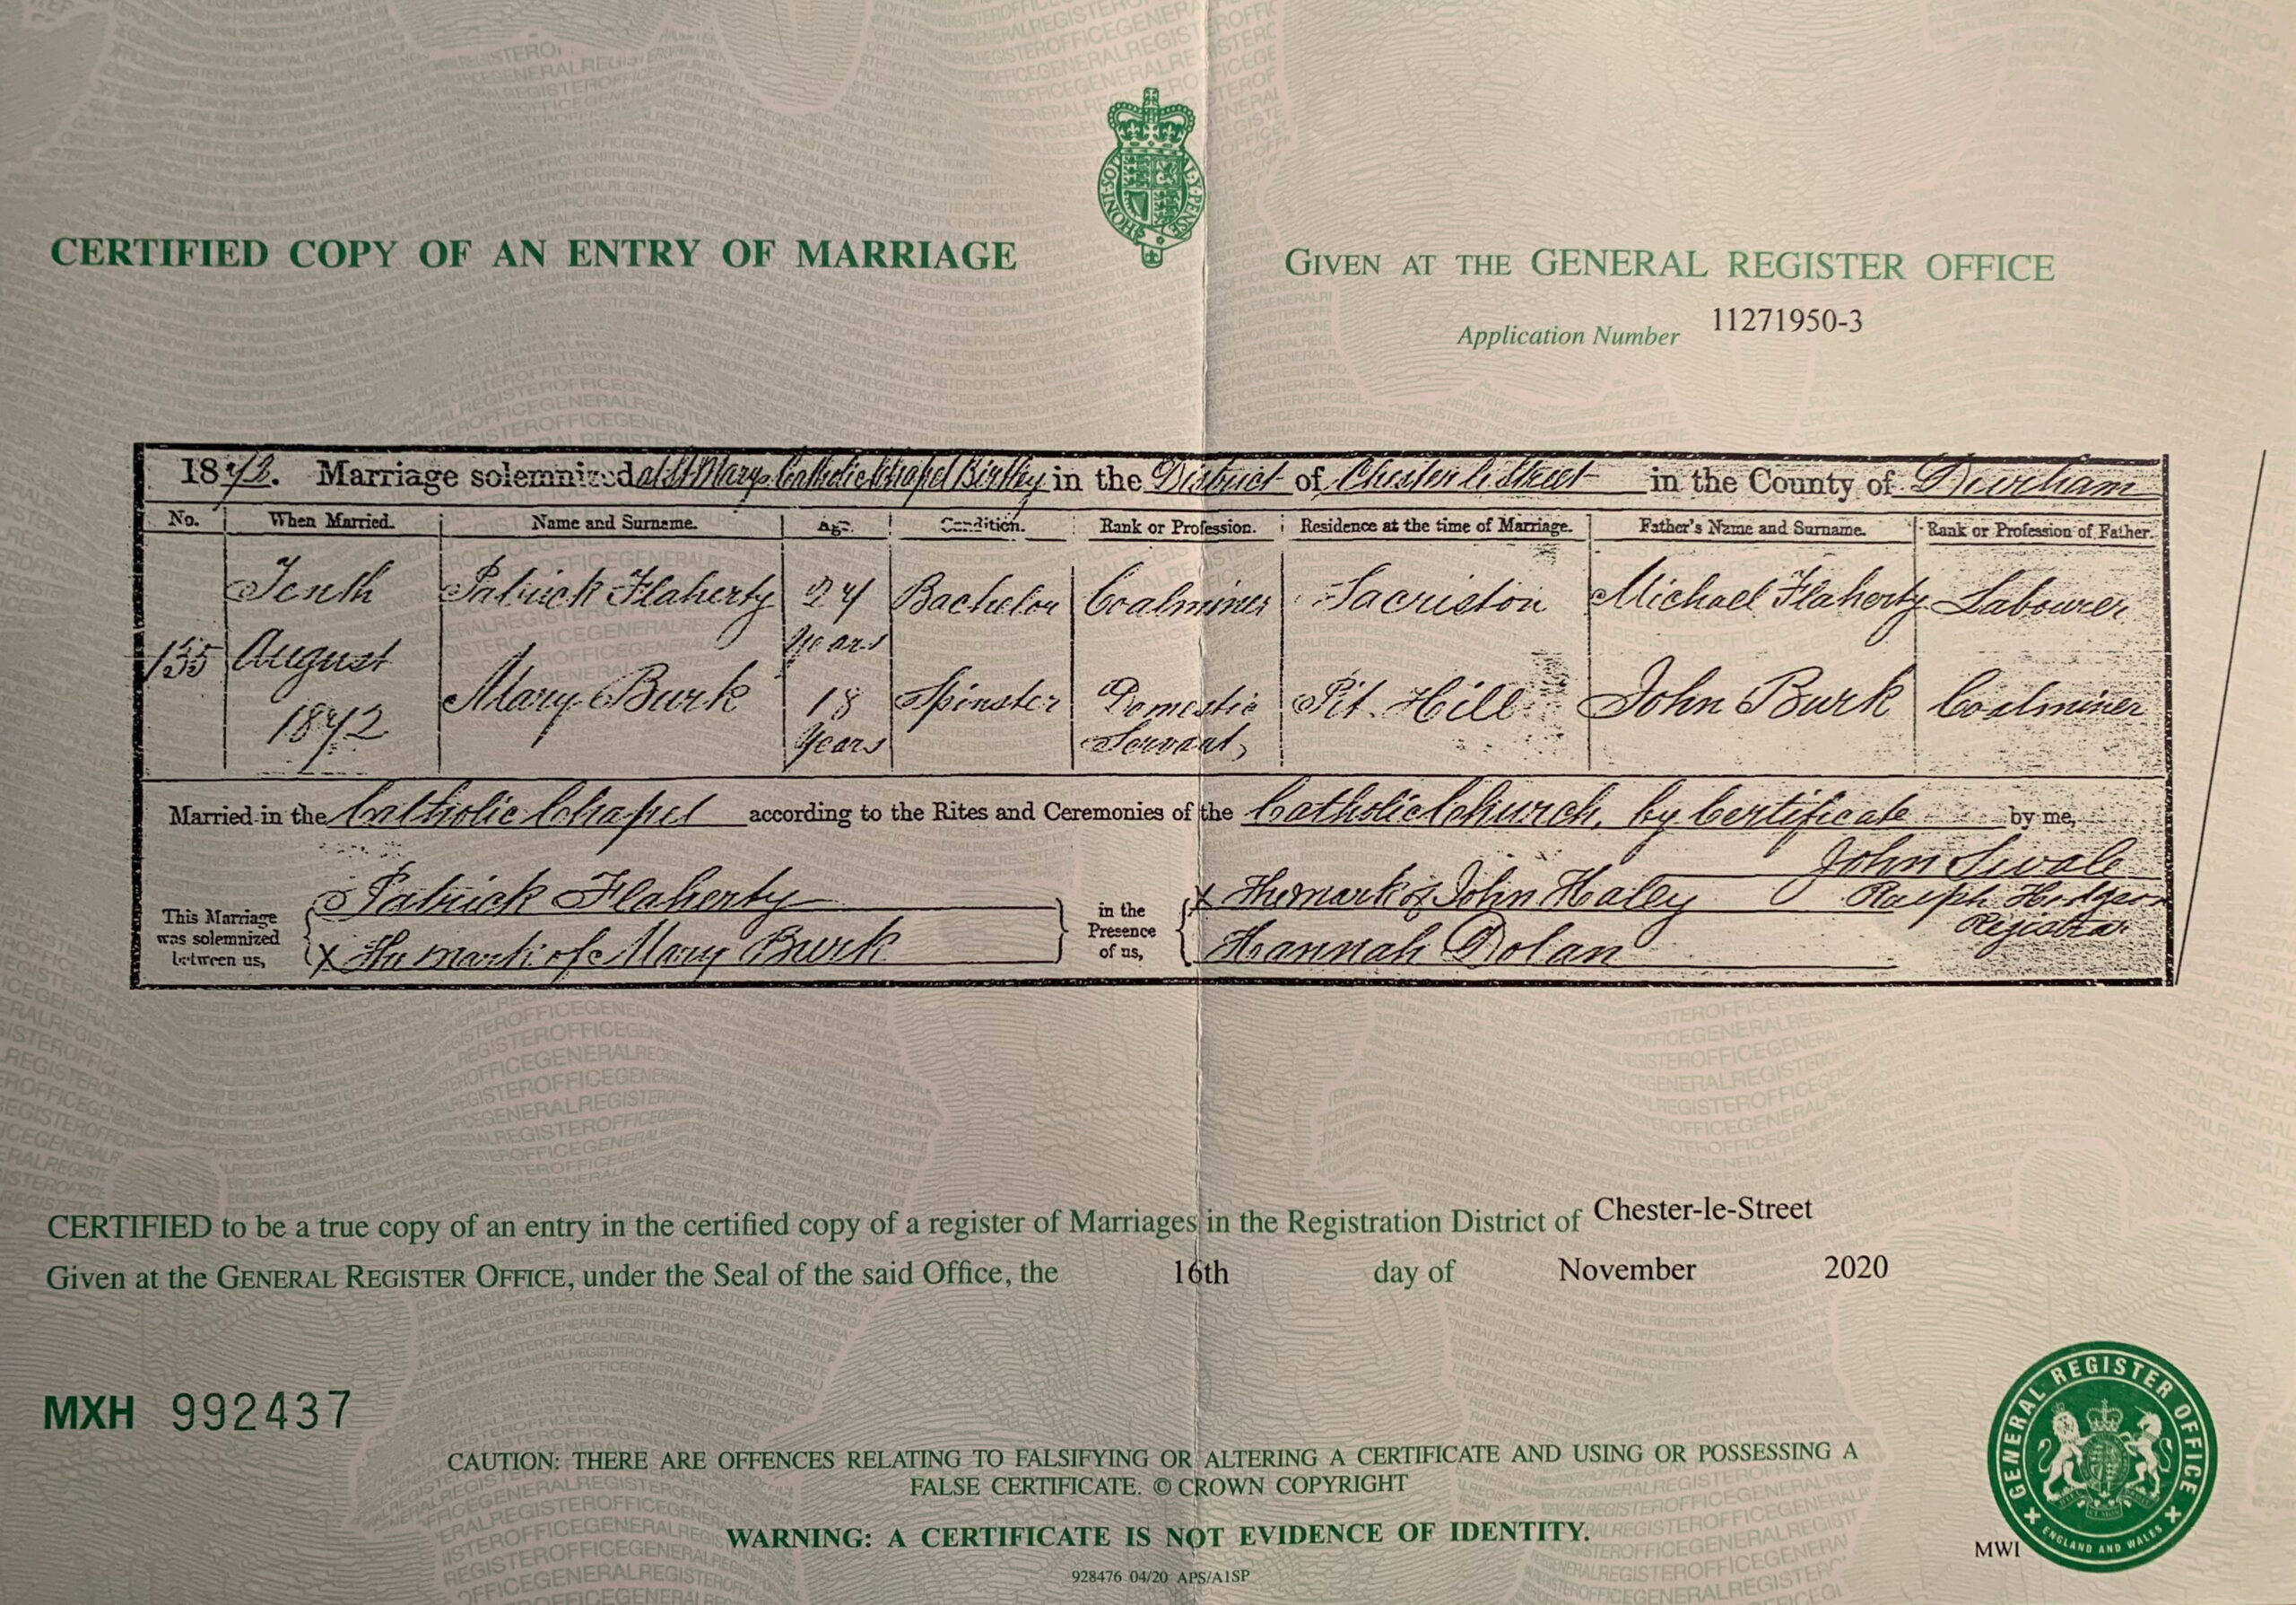 CERTIFIED COPY OF AN ENTRY OF MARRIAGE
HONI SOIT MAL Y PENSE
GIVEN AT THE GENERAL REGISTER OFFICE
Application Number 11271950-3
1872. Marriage solemnized at St Marys Catholic Chapel Birtley in the District of Chester le Street in the County of Durham
No. When Married. Name and Surname. Age. Condition. Rank or Profession. Residence at the time of Marriage. Father's Name and Surname. Rank or Profession of Father.
Tenth Patrick Flaherty 24 Years Bachelor Coalminer Sacriston Michael Flaherty Labourer
135 August
1872 Mary Burk 18 Years Spinster Domestic Servant Pit Hill John Burk Coalminer
Married in the Catholic Chapel according to the Rites and Ceremonies of the Catholic Church, by Certificate by me,
This Marriage was solemnized between us,
Patrick Flaherty
X The mark of Mary Burk
in the Presence of us,
X The mark of John Haley
Hannah Dolan
John Swale
Ralph Hodgson
Registrar
CERTIFIED to be a true copy of an entry in the certified copy of a register of Marriages in the Registration District of Chester-le-Street
Given at the GENERAL REGISTER OFFICE, under the Seal of the said Office, the 16th day of November 2020
MXH 992437
CAUTION: THERE ARE OFFENCES RELATING TO FALSIFYING OR ALTERING A CERTIFICATE AND USING OR POSSESSING A
FALSE CERTIFICATE. © CROWN COPYRIGHT
WARNING: A CERTIFICATE IS NOT EVIDENCE OF IDENTITY.
928476 04/20 APS/A1SP
MWI
GENERAL REGISTER OFFICE
ENGLAND AND WALES